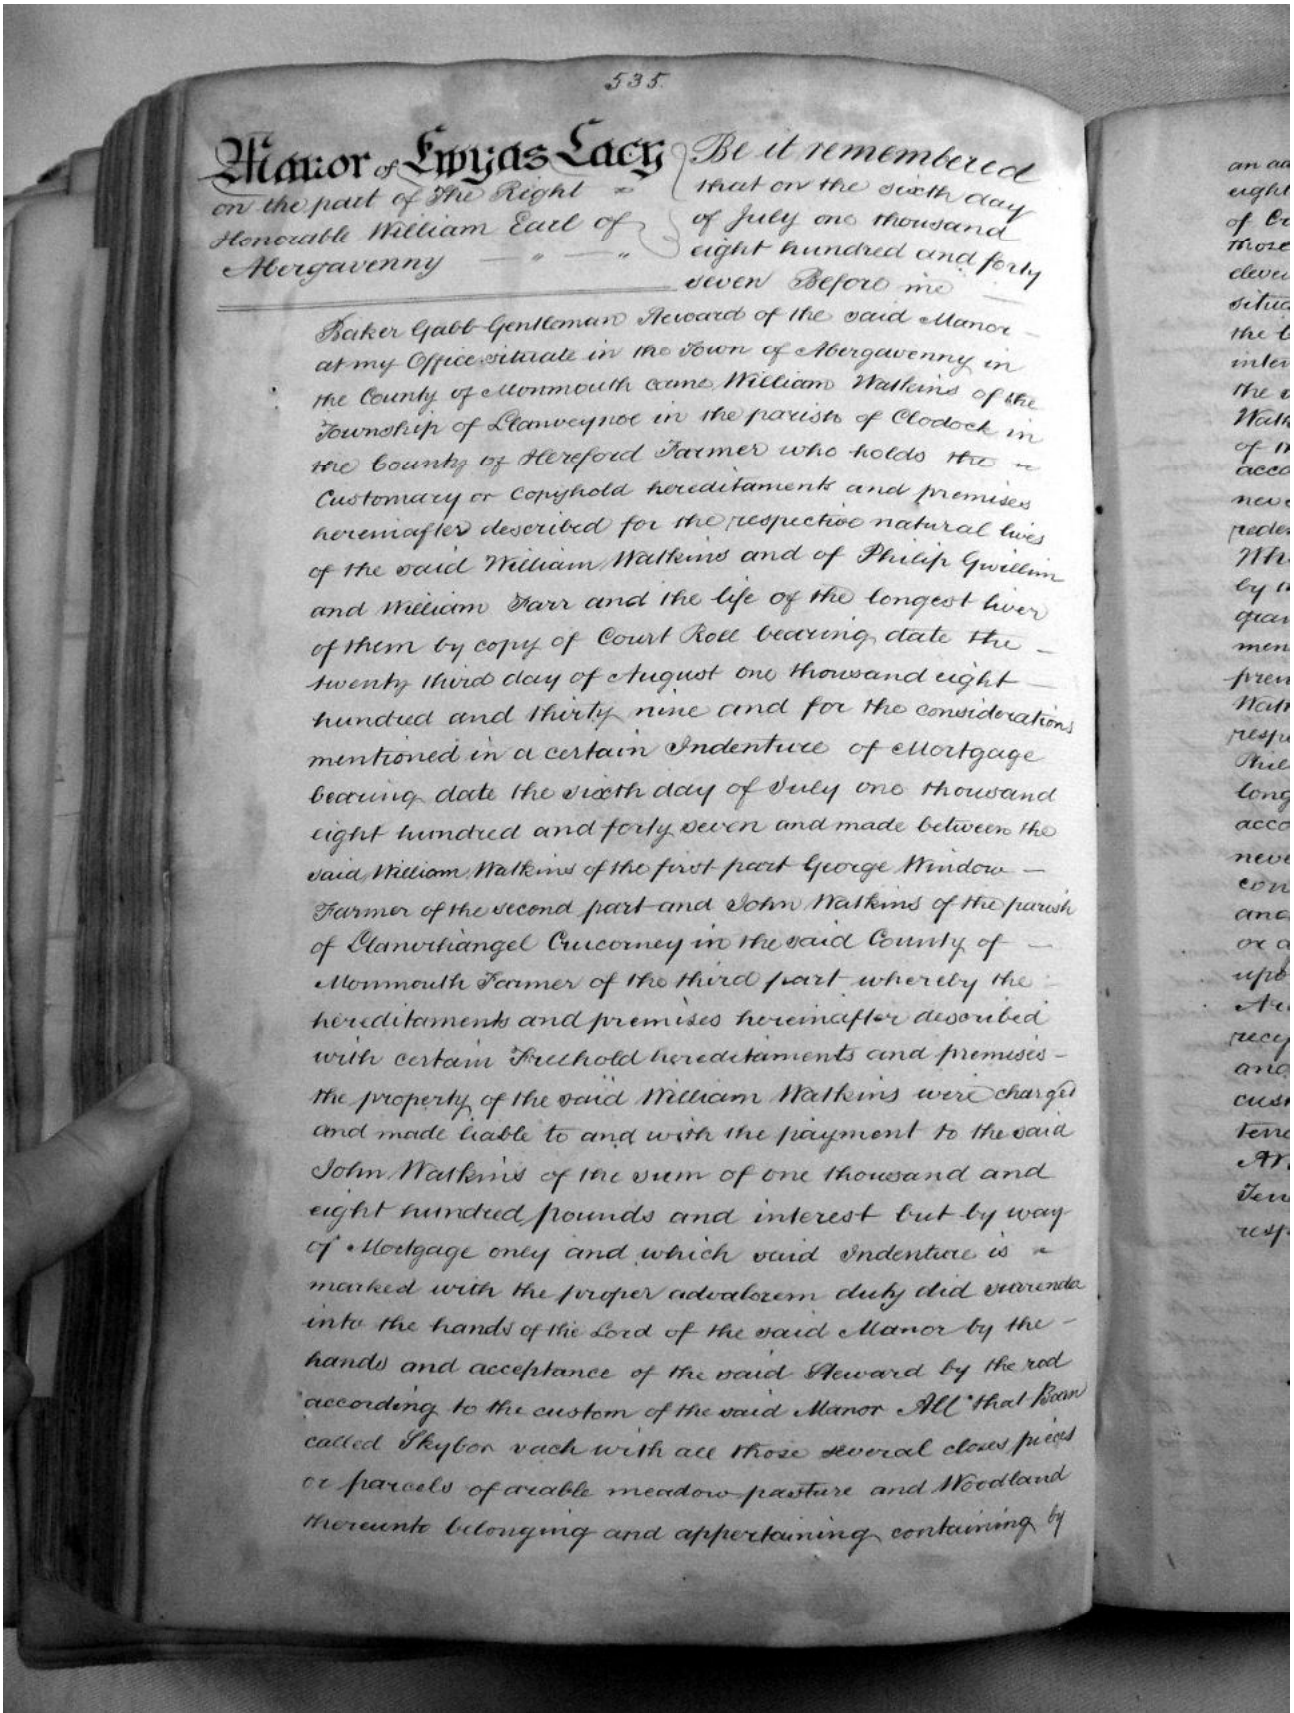 535.
Manor of Ewyas Lacy
on the part of The Right
Honorable William Earl of
Abergavenny
Be it remembered
that on the sixth day
of July one thousand
eight hundred and forty
seven Before me
Baker Gabb Gentleman Steward of the said Manor
at my Office situate in the Town of Abergavenny in
the County of Monmouth came William Watkins of the
Township of Llanveynoe in the parish of Clodock in
the County of Hereford Farmer who holds the
Customary or Copyhold hereditaments and premises
hereinafter described for the respective natural lives
of the said William Watkins and of Philip Gwillim
and William Farr and the life of the longest liver
of them by copy of Court Roll bearing date the
twenty third day of August one thousand eight
hundred and thirty nine and for the considerations
mentioned in a certain Indenture of Mortgage
bearing date the sixth day of July one thousand
eight hundred and forty seven and made between the
said William Watkins of the first part George Window
Farmer of the second part and John Watkins of the parish
of Llanvihangel Crucorney in the said County of
Monmouth Farmer of the third part whereby the
hereditaments and premises hereinafter described
with certain Freehold hereditaments and premises
the property of the said William Watkins were charged
and made liable to and with the payment to the said
John Watkins of the sum of one thousand and
eight hundred pounds and interest but by way
of Mortgage only and which said Indenture is
marked with the proper advalorem duty did surrender
into the hands of the Lord of the said Manor by the
hands and acceptance of the said Steward by the rod
according to the custom of the said Manor All that Barn
called Skybor vach with all those several closes pieces
or parcels of arable meadow pasture and Woodland
thereunto belonging and appertaining containing by